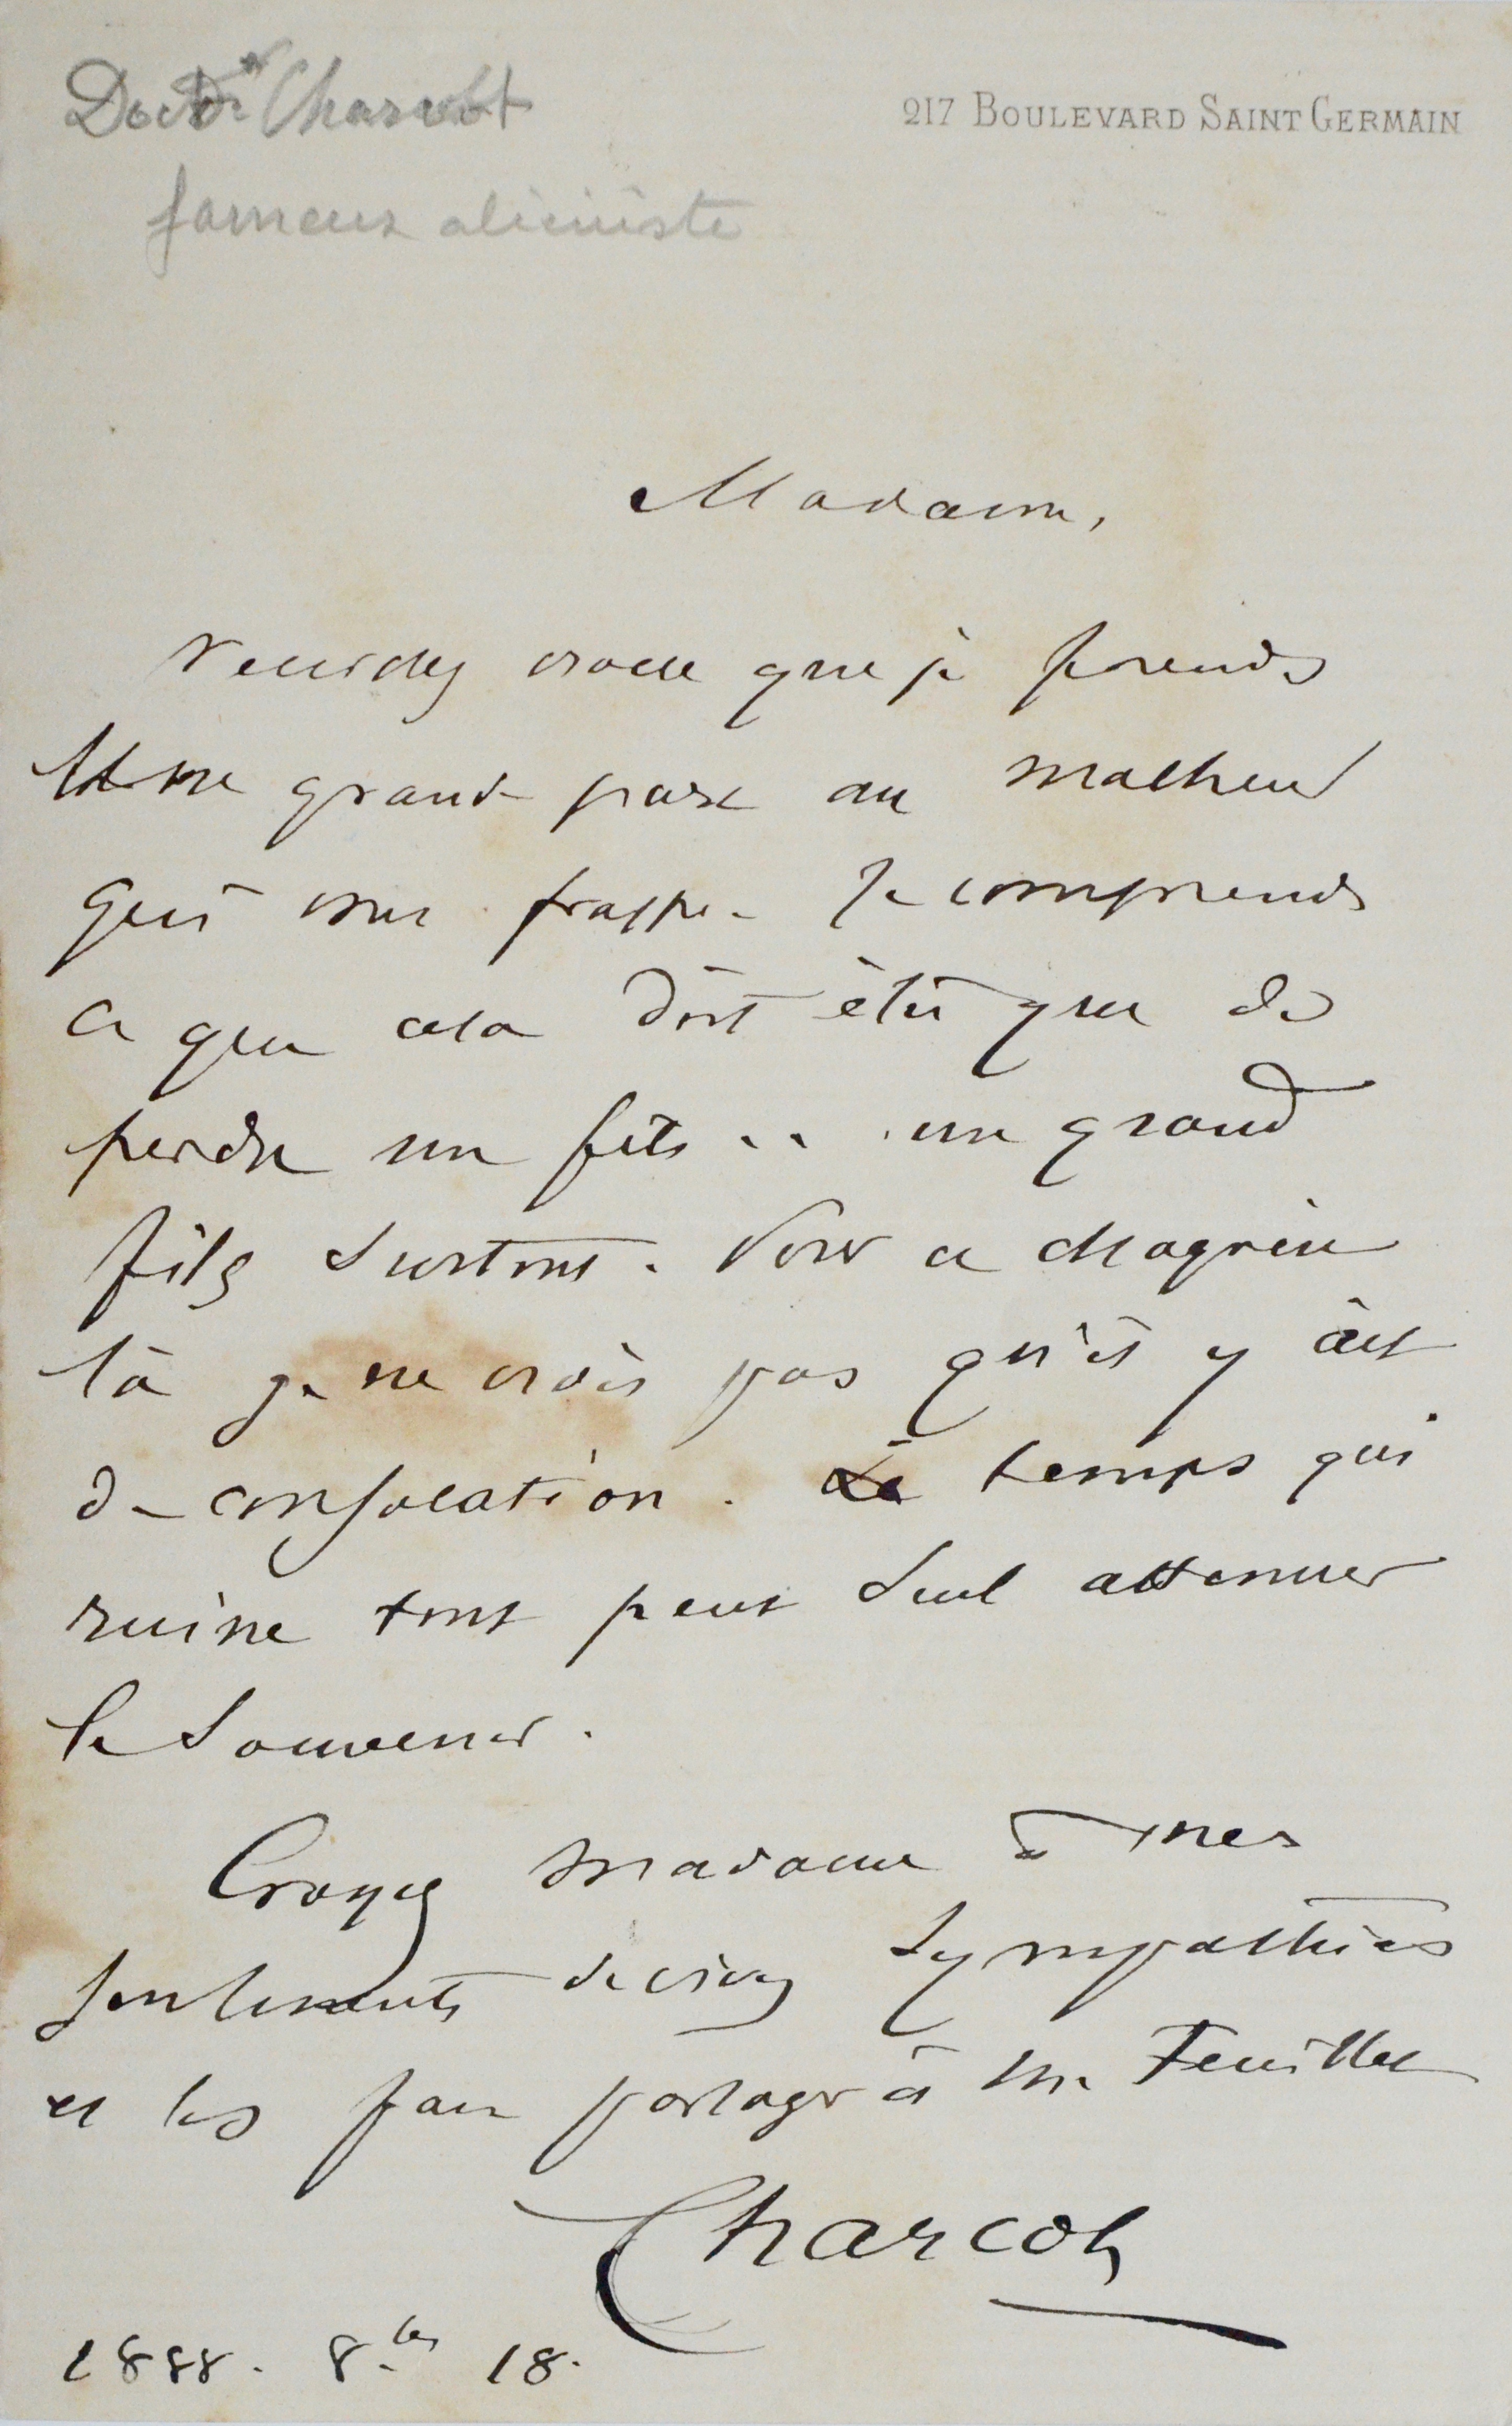 Doctr Charcot
217 BOULEVARD SAINT GERMAIN
fameux aliéniste
Madame,
veuillez croire que je prends
une grande part au malheur
qui vous frappe. Je comprends
ce que cela doit être que de
perdre un fils .. un grand
fils surtout. Pour ce chagrin
là je ne crois pas qu'il y ait
de consolation. Le temps qui
ruine tout peut seul attenuer
le souvenir.
Croyez madame à mes
sentiments de vives sympathies
et les faire partager à Mr Feuillet
Charcot
1888. 8bre 18.